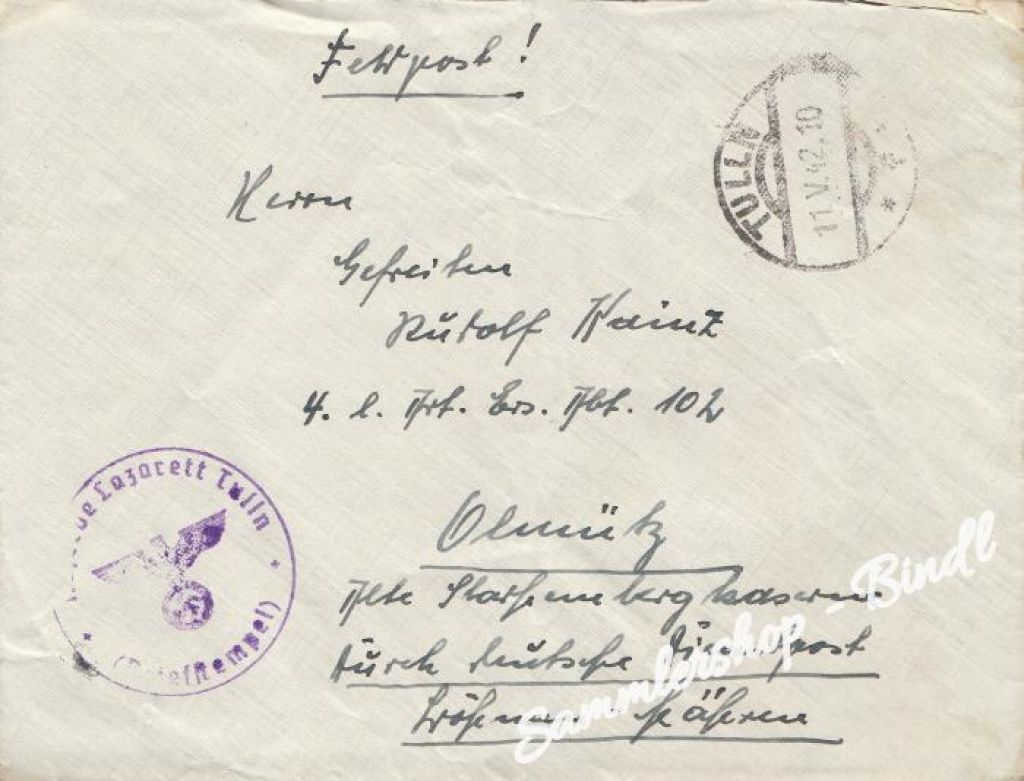 Feldpost!
TULLN
11.V.42.10
Herrn
Gefreiten
Rudolf Kainz
4. l. Art. Ers. Abt. 102
Lazarett Tulln
(Briefstempel)
Olmütz
Alte Starhembergkaserne
Durch deutsche Dienstpost
Böhmen Mähren
Sammlershop - Bindl